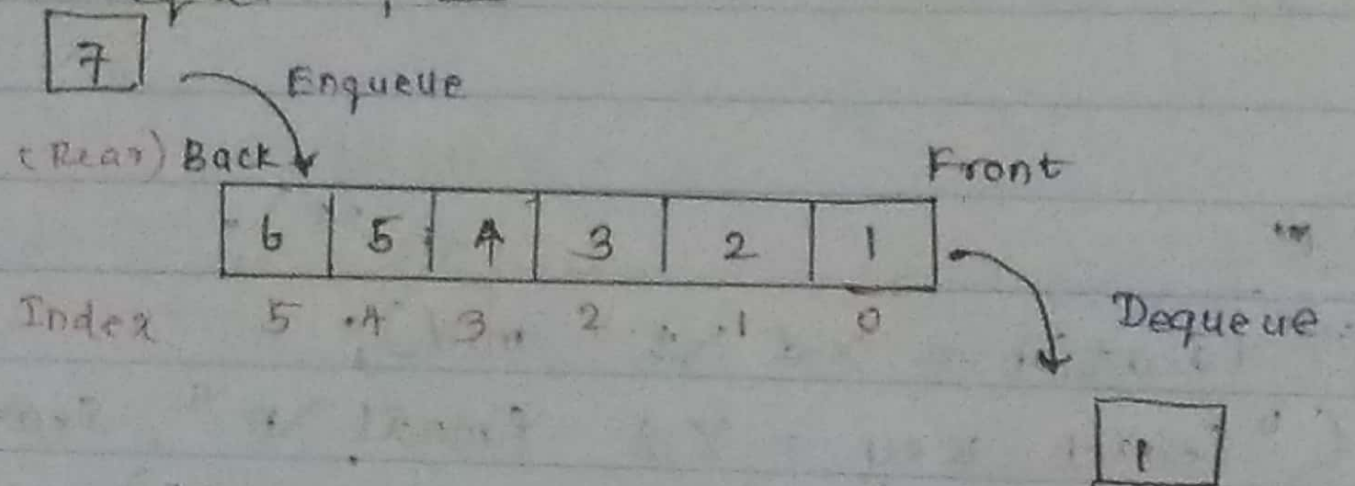 7
Enqueue
(Rear) Back Front
6 5 4 3 2 1
Index 5 4 3 2 1 0
Dequeue
1